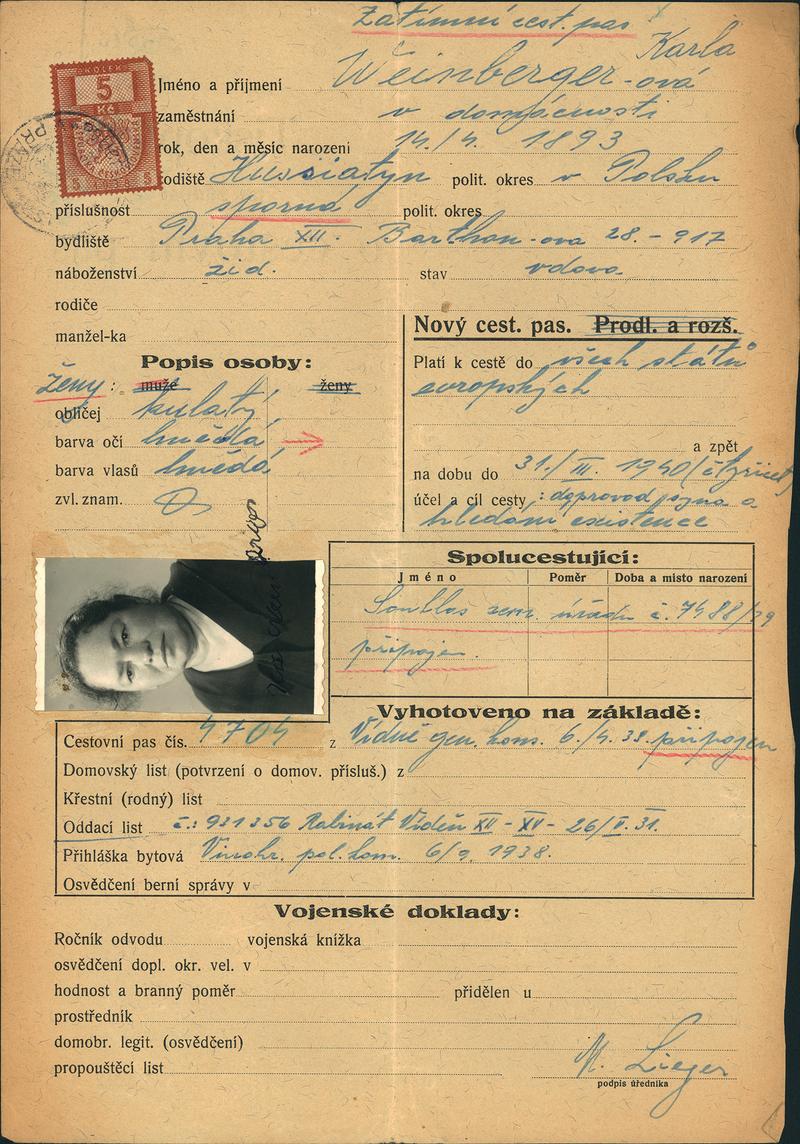 Zatímní cest. pas
KOLEK
5
Kč
Karla
Jméno a příjmení Weinberger-ová
zaměstnání v domácnosti
rok, den a měsíc narození 14./4. 1893
rodiště Hussiatyn polit. okres v Polsku
příslušnost sporná polit. okres
bydliště Praha XII. Barthou-ova 28.-917
náboženství žid. stav vdova
rodiče
manžel-ka
Nový cest. pas. Prodl. a rozš.
Popis osoby:
Platí k cestě do všech států
ženy: muže ženy
evropských
obličej kulatý
barva očí hnědá
a zpět
barva vlasů hnědá
na dobu do 31./III. 1940 (čtyřicet)
zvl. znam.
účel a cíl cesty: doprovod syna a
hledání existence
Spolucestující:
Jméno Poměr Doba a místo narození
Souhlas zem. úřadu č. 7488/39
připojen.
Vyhotoveno na základě:
Cestovní pas čís. 4704 z Vídně gen. kons. 6./4. 38. připojen
Domovský list (potvrzení o domov. přísluš.) z
Křestní (rodný) list
Oddací list č.: 931356 Rabinát Vídeň XII - XV - 26/V. 31.
Přihláška bytová Vinohr. pol. kom. 6/9. 1938.
Osvědčení berní správy v
Vojenské doklady:
Ročník odvodu vojenská knížka
osvědčení dopl. okr. vel. v
hodnost a branný poměr přidělen u
prostředník
domobr. legit. (osvědčení)
propouštěcí list
M. Lieger
podpis úředníka